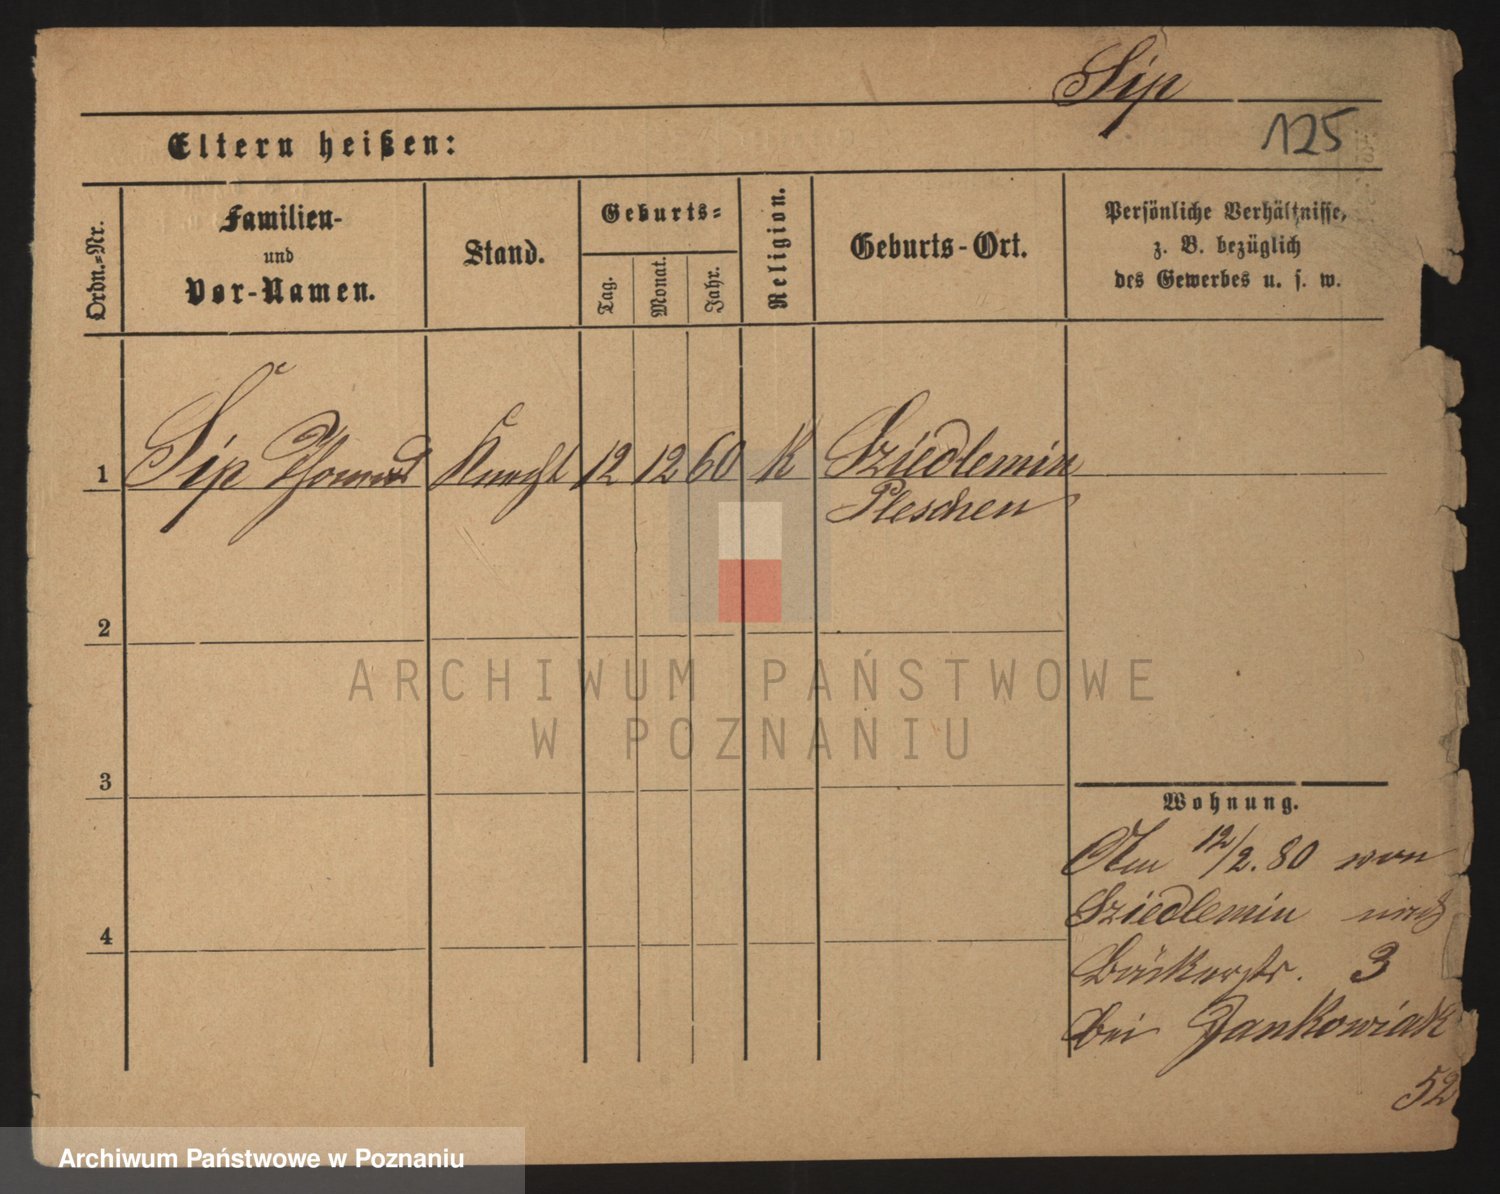 Sip
125
Eltern heißen:
Ordn.-Nr.
Familien-
und
Vor-Namen.
Stand.
Geburts-
Tag.
Monat.
Jahr.
Religion.
Geburts-Ort.
Persönliche Verhältnisse,
z. B. bezüglich
des Gewerbes u. s. w.
1 Sip Thomas Knecht 12 12 60 K Sziedlemin
Pleschen
2
3
4
Wohnung.
Am 12/2.80 von
Sziedlemin nach
Bäckerstr. 3
bei Jankowiak
52
ARCHIWUM PAŃSTWOWE
W POZNANIU
Archiwum Państwowe w Poznaniu